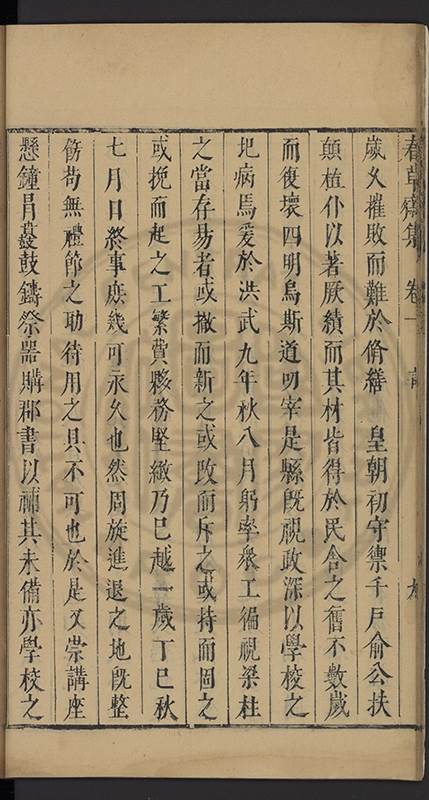 春草齋集 卷一 記
歲久摧敗而難於脩繕 皇朝初守禦千戶俞公扶
顛植仆以著厥績而其材皆得於民舍之舊不數歲
而復壞四明烏斯道叨宰是縣旣視政深以學校之
圯病焉爰於洪武九年秋八月躬率衆工徧視梁柱
之當存易者或撤而新之或改而斥之或持而固之
或挽而起之工繁費夥務堅緻乃已越一歲丁巳秋
七月日終事庶幾可永久也然周旋進退之地旣整
飭苟無禮節之助待用之具不可也於是又崇講座
懸鐘冐鼖鼓鑄祭器購郡書以補其未備亦學校之